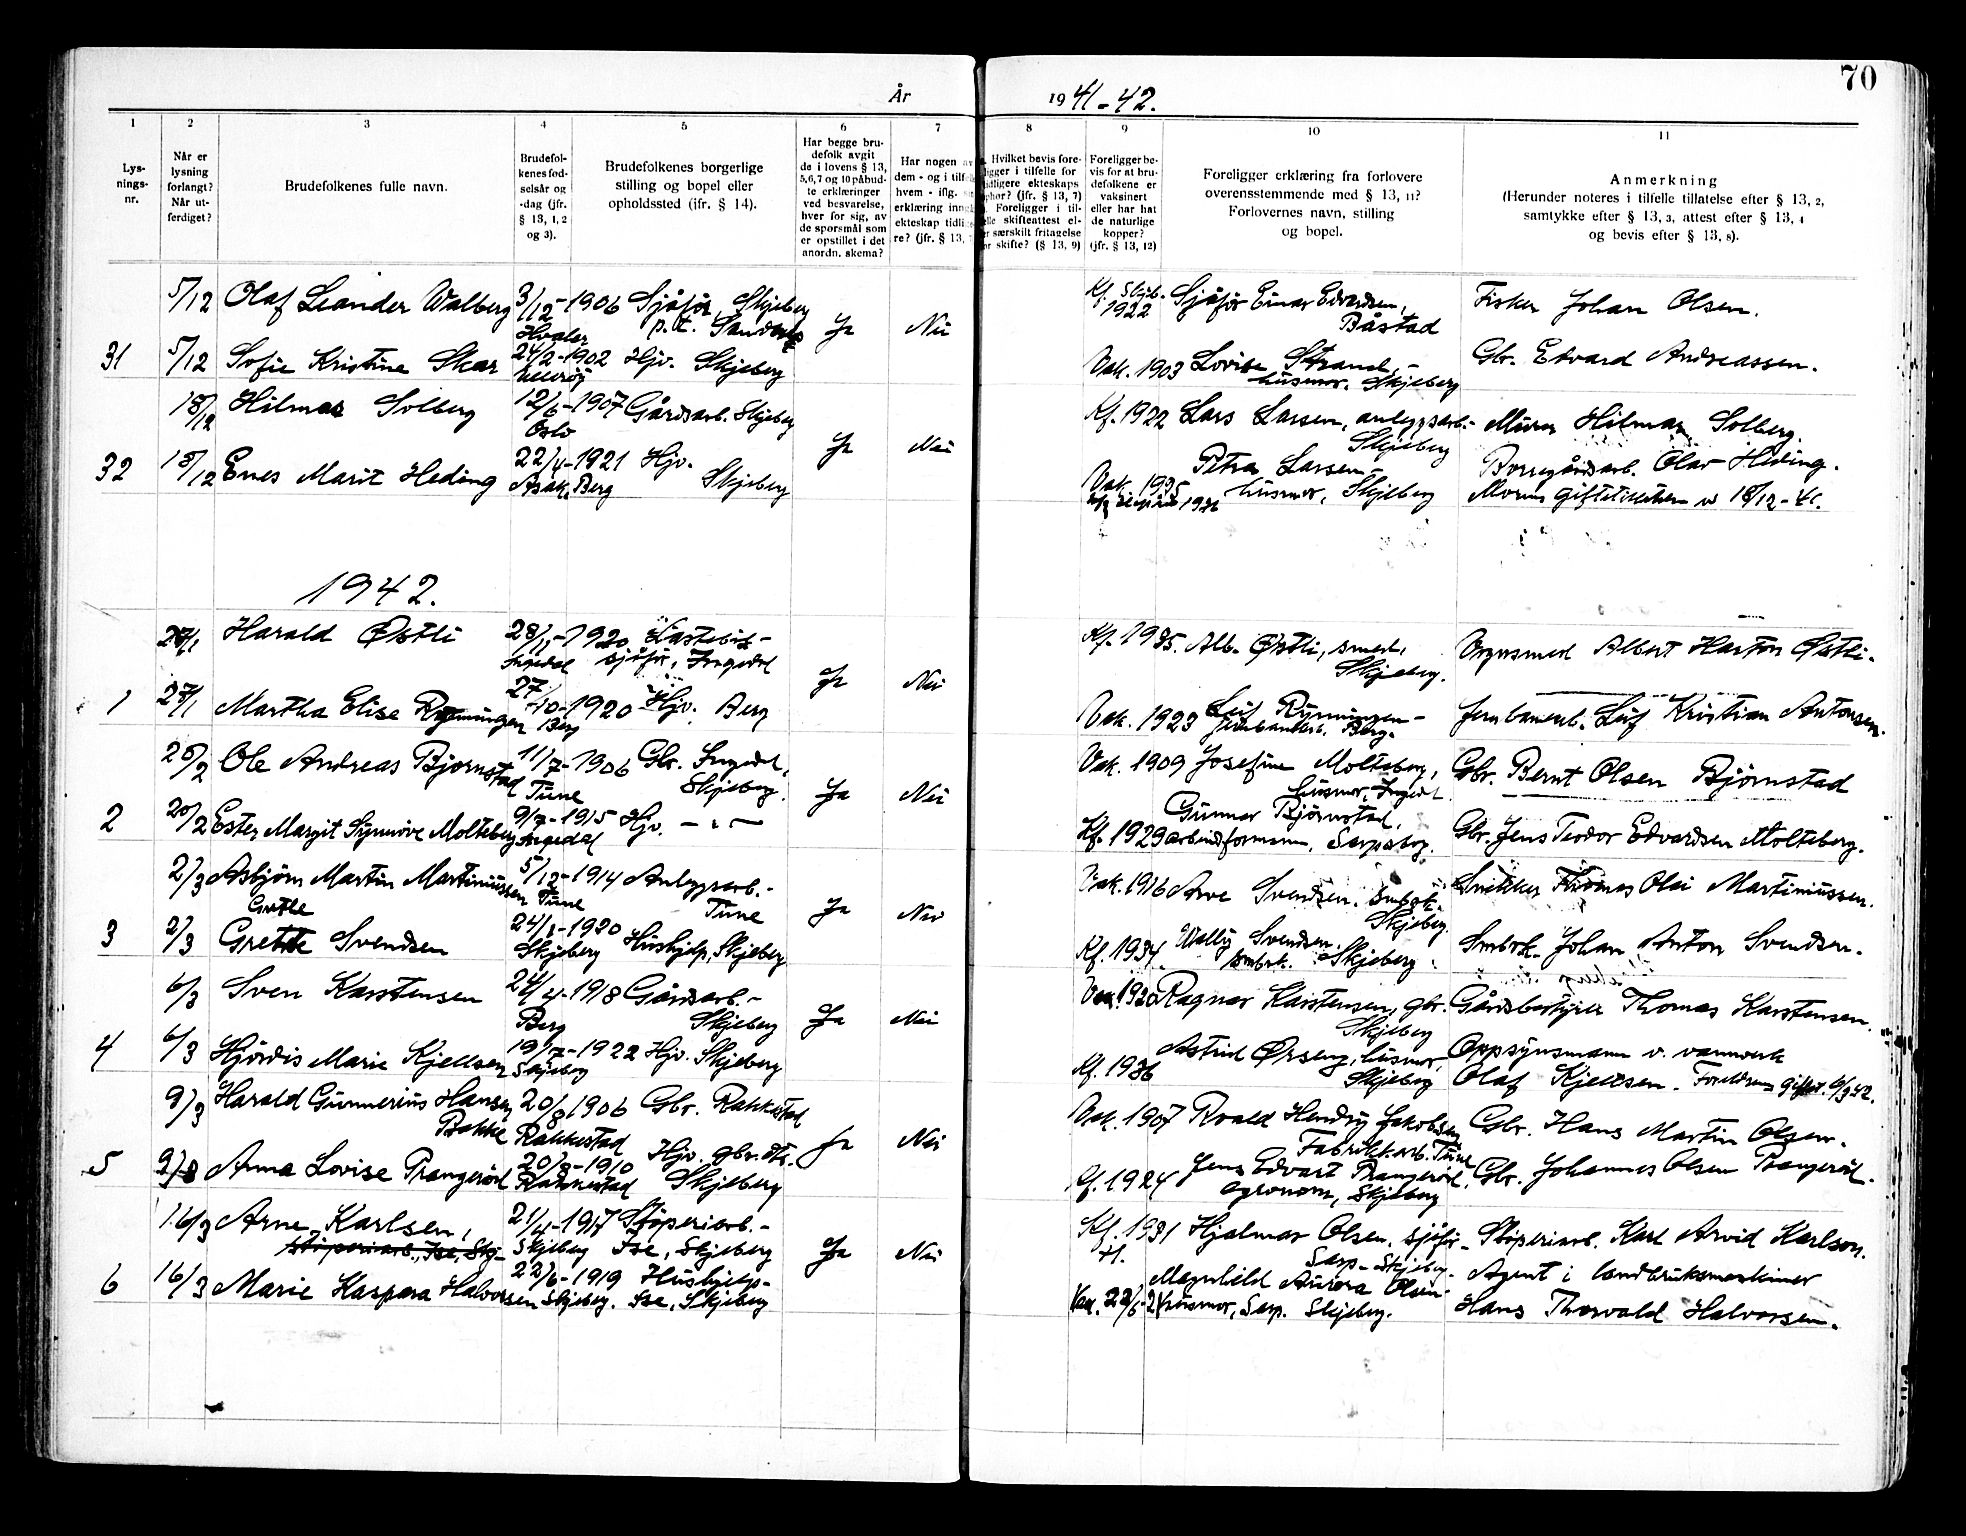 70
År 1941-42.
1 2 3 4 5 6 7 8 9 10 11
Lys-
nings-
nr.
Når er
lysning
forlangt?
Når ut-
ferdiget?
Brudefolkenes fulle navn.
Brudefol-
kenes fød-
selsår og
-dag (jfr.
§ 13, 1, 2
og 3).
Brudefolkenes borgerlige
stilling og bopel eller
opholdssted (jfr. § 14).
Har begge bru-
defolk avgit
de i lovens § 13,
5,6,7 og 10 påbud-
te erklæringer
ved besvarelse,
hver for sig, av
de spørsmål som
er opstillet i det
anordn. skema?
Har nogen av
dem - og i tilf
hvem - iflg.
erklæring inng
ekteskap tidlig
re? (jfr. § 13,
Hvilket bevis fore-
ligger i tilfelle for
tidligere ekteskaps
ophør? (jfr. § 13, 7)
Foreligger i til-
felle skifteattest el-
er særskilt fritagelse
for skifte? (§ 13, 9)
Foreligger be-
vis for at bru-
defolkene er
vaksinert
eller har hat
de naturlige
kopper?
(jfr. § 13, 12)
Foreligger erklæring fra forlovere
overensstemmende med § 13, 11?
Forlovernes navn, stilling
og bopel.
Anmerkning
(Herunder noteres i tilfelle tillatelse efter § 13, 2,
samtykke efter § 13, 3, attest efter § 13, 4
og bevis efter § 13, 8).
5/12 Olaf Leander Walberg 3/12-1906 Sjåfør, Skjeberg Ja Nei Kf. Skjeb. Sjåfør Einar Edvardsen, Fisker Johan Olsen.
Hvaler p.t. 1922 Båstad
31 5/12 Sofie Kristine Skar 24/2-1902 Hjv. Skjeberg Vak. 1903 Lovise Strand,- Gbr. Edvard Andreassen.
husmor. Skjeberg
18/12 Hilmar Solberg 12/6-1907 Gårdsarb. Skjeberg Ja Nei Kf. 1922 Lars Larsen, anleggsarb.- Murer Hilmar Solberg.
Oslo Skjeberg
32 18/12 Enes Marit Heding 22/4-1921 Hjv. Vak. 1935 Petra Larsen- Borregårdsarb. Olav Heding.
Asak, Berg Skjeberg husmor, Skjeberg Morens 18/12-41.
1942.
28/1 Harald Østli 28/11-1920 Lastebil- Ja Nei Kf. 1935. Alb. Østli, smed, Vognsmed Albert Harton Østli.
Ingedal sjåfør, Ingedal Skjeberg.
1 28/1 Martha Elise Rynningen 27/10-1920 Hjv. Berg Vak. 1923 Leif Rynningen- Jernbanearb. Leif Kristian Antonsen.
Berg Jernbanearb. Berg.
20/2 Ole Andreas Bjørnstad 11/7-1906 Gbr. Ingedal, Ja Nei Vak. 1909 Josefine Molteberg, Gbr. Bernt Olsen Bjørnstad
Tune Skjeberg. husmor, Ingedal
2 20/2 Ester Margit Synnøve Molteberg 9/7-1915 Hjv. - " - Kf. 1929 Gunnar Bjørnstad, Gbr. Jens Teodor Edvardsen Molteberg.
Ingedal arbeidsformann, Sarpsborg.
2/3 Asbjørn Martin Martiniussen 5/12-1914 Anleggsarb.- Ja Nei Vak. 1916 Arve Svendsen. Smbrk. Snekker Thomas Olai Martiniussen.
Tune Tune Skjeberg
Grethe
3 2/3 Grethe Svendsen 24/1-1920 Hushjelp, Skjeberg Kf. 1934. Wally Svendsen. Smbrk. Johan Anton Svendsen.
Skjeberg smbrk. Skjeberg.
6/3 Sven Karstensen 24/4-1918 Gårdsarb.- Ja Nei Vak. 1920 Ragnar Karstensen, gbr. Gårdsbestyrer Thomas Karstensen.
Berg Skjeberg Skjeberg
4 6/3 Hjørdis Marie Kjellsen 19/7-1922 Hjv. Skjeberg Kf. 1936 Astrid Ørseng, husmor, Oppsynsmann v. vannverk
Skjeberg Skjeberg Olaf Kjellsen. 6/3 42.
9/3 Harald Gunnerius Hansen 20/8 1906 Gbr. Rakkestad Ja Nei Vak. 1907 Roald Hendry Jakobsen Gbr. Hans Martin Olsen.
Bakke Rakkestad Fabrikkarb. Tune
5 9/3 Anna Lovise Prangerød 20/8-1910 Hjv. gbr.dtr. Kf. 1924 Jens Edvart Prangerød, Gbr. Johannes Olsen Prangerød.
Rakkestad Skjeberg agronom, Skjeberg
16/3 Arne Karlsen, 21/4-1917 Støperiarb.- Ja Nei Kf. 1931 Hjalmar Olsen, sjåfør- Støperiarb. Karl Arvid Karlson.
støperiarb., Ise, Skj- Skjeberg Ise, Skjeberg Sarp-Skjeberg.
6 16/3 Marie Kaspara Halvorsen 22/6-1919 Hushjelp- Magnhild Aurora Olsen- Agent i landbruksmaskiner
Skjeberg. Ise, Skjeberg Vak. 22/6-21 husmor, Sarp. Skjeberg. Hans Thorvald Halvorsen.